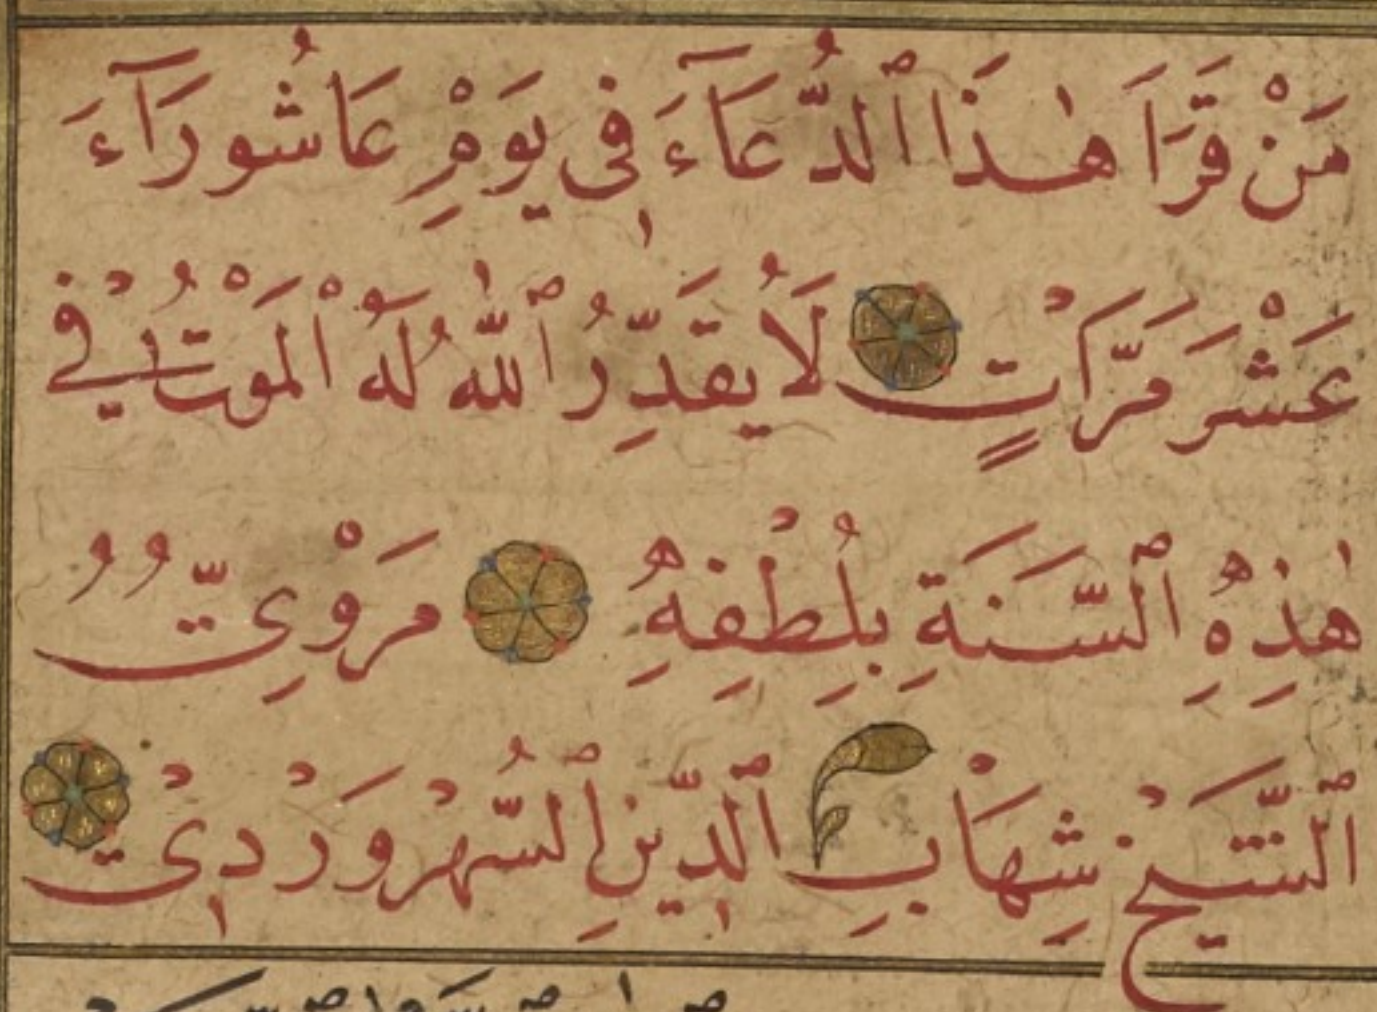 مَنْ قَرَاَ هٰذَا ٱلدُّعَآءَ فِى يَوْمِ عَاشُورَآءَ
عَشْرَ مَرَّاتٍ لَا يُقَدِّرُ ٱللّٰهُ لَهُ الْمَوْتُ فِي
هٰذِهِ ٱلسَّنَةِ بِلُطْفِهِ مَرْوِىٌّ
ٱلشَّيْخ شِهَابِ ٱلدِّينِ ٱلسُّهْرَوَرْدِىّ